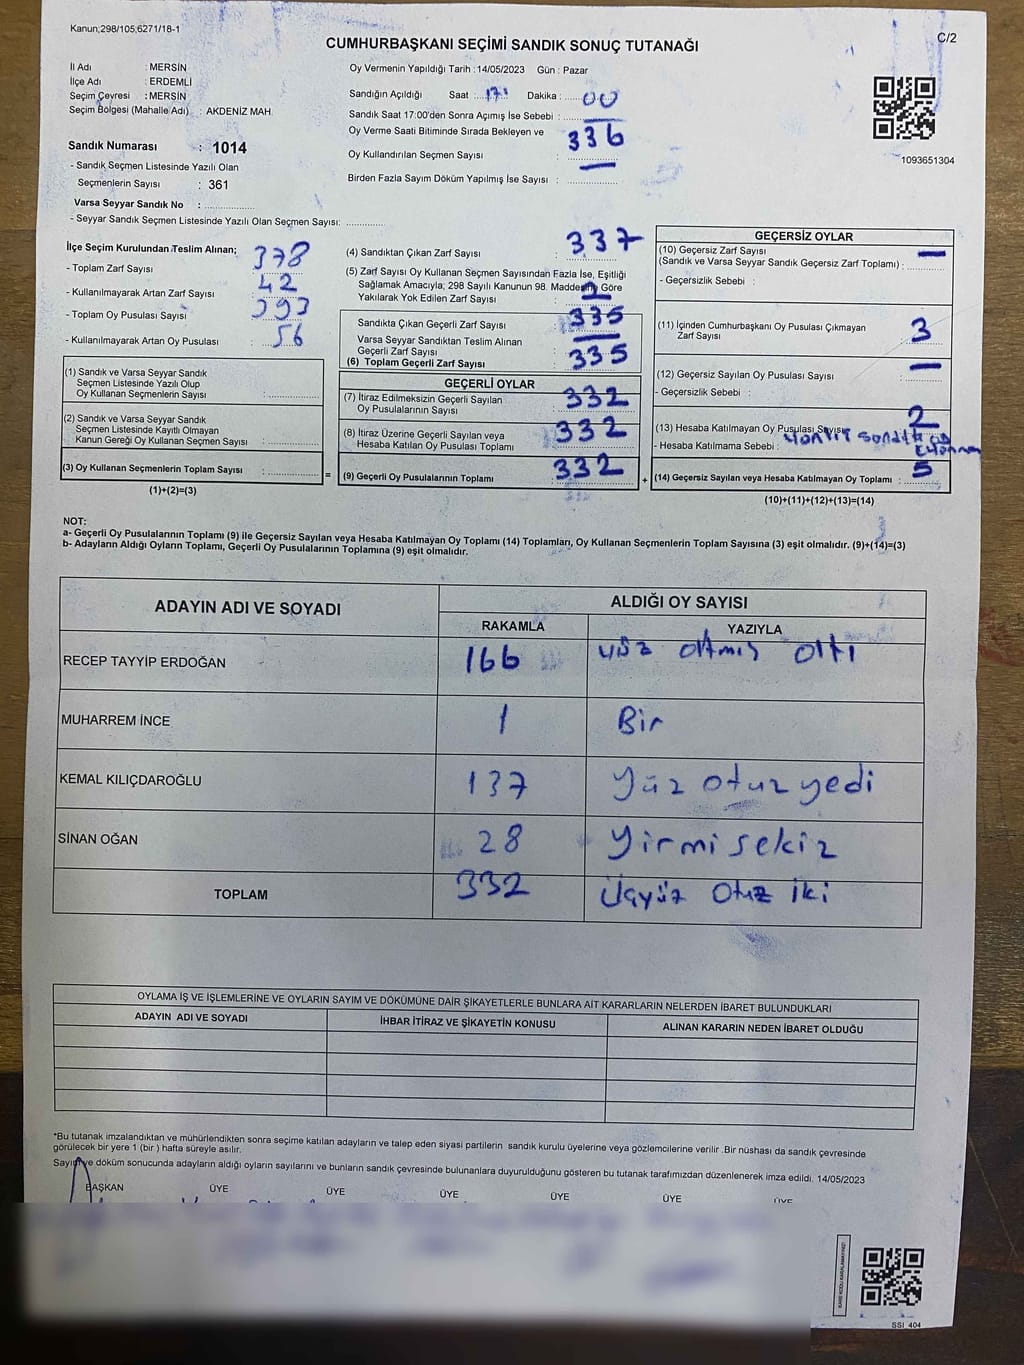 Kanun;298/105;6271/18-1
C/2
CUMHURBAŞKANI SEÇİMİ SANDIK SONUÇ TUTANAĞI
İl Adı : MERSİN
İlçe Adı : ERDEMLİ
Seçim Çevresi : MERSİN
Seçim Bölgesi (Mahalle Adı) : AKDENİZ MAH.
Sandık Numarası : 1014
- Sandık Seçmen Listesinde Yazılı Olan
Seçmenlerin Sayısı : 361
Varsa Seyyar Sandık No :
- Seyyar Sandık Seçmen Listesinde Yazılı Olan Seçmen Sayısı:
Oy Vermenin Yapıldığı Tarih : 14/05/2023 Gün : Pazar
Sandığın Açıldığı Saat 17: Dakika : 00
Sandık Saat 17:00'den Sonra Açımış İse Sebebi :
Oy Verme Saati Bitiminde Sırada Bekleyen ve
Oy Kullandırılan Seçmen Sayısı : 336
Birden Fazla Sayım Döküm Yapılmış İse Sayısı :
1093651304
İlçe Seçim Kurulundan Teslim Alınan;
- Toplam Zarf Sayısı : 378
- Kullanılmayarak Artan Zarf Sayısı : 42
- Toplam Oy Pusulası Sayısı : 393
- Kullanılmayarak Artan Oy Pusulası : 56
(1) Sandık ve Varsa Seyyar Sandık
Seçmen Listesinde Yazılı Olup
Oy Kullanan Seçmenlerin Sayısı :
(2) Sandık ve Varsa Seyyar Sandık
Seçmen Listesinde Kayıtlı Olmayan
Kanun Gereği Oy Kullanan Seçmen Sayısı :
(3) Oy Kullanan Seçmenlerin Toplam Sayısı :
(1)+(2)=(3)
=
(4) Sandıktan Çıkan Zarf Sayısı : 337
(5) Zarf Sayısı Oy Kullanan Seçmen Sayısından Fazla İse, Eşitliği
Sağlamak Amacıyla; 298 Sayılı Kanunun 98. Maddesine Göre
Yakılarak Yok Edilen Zarf Sayısı : 2
Sandıkta Çıkan Geçerli Zarf Sayısı : 335
Varsa Seyyar Sandıktan Teslim Alınan
Geçerli Zarf Sayısı :
(6) Toplam Geçerli Zarf Sayısı : 335
GEÇERLİ OYLAR
(7) İtiraz Edilmeksizin Geçerli Sayılan
Oy Pusulalarının Sayısı : 332
(8) İtiraz Üzerine Geçerli Sayılan veya
Hesaba Katılan Oy Pusulası Toplamı : 332
(9) Geçerli Oy Pusulalarının Toplamı : 332
+
GEÇERSİZ OYLAR
(10) Geçersiz Zarf Sayısı —
(Sandık ve Varsa Seyyar Sandık Geçersiz Zarf Toplamı) :
- Geçersizlik Sebebi :
(11) İçinden Cumhurbaşkanı Oy Pusulası Çıkmayan
Zarf Sayısı : 3
(12) Geçersiz Sayılan Oy Pusulası Sayısı : —
- Geçersizlik Sebebi :
(13) Hesaba Katılmayan Oy Pusulası Sayısı 2
- Hesaba Katılmama Sebebi :
(14) Geçersiz Sayılan veya Hesaba Katılmayan Oy Toplamı : 5
(10)+(11)+(12)+(13)=(14)
NOT:
a- Geçerli Oy Pusulalarının Toplamı (9) ile Geçersiz Sayılan veya Hesaba Katılmayan Oy Toplamı (14) Toplamları, Oy Kullanan Seçmenlerin Toplam Sayısına (3) eşit olmalıdır. (9)+(14)=(3)
b- Adayların Aldığı Oyların Toplamı, Geçerli Oy Pusulalarının Toplamına (9) eşit olmalıdır.
ADAYIN ADI VE SOYADI ALDIĞI OY SAYISI
RAKAMLA YAZIYLA
RECEP TAYYİP ERDOĞAN 166 yüz altmış altı
MUHARREM İNCE 1 Bir
KEMAL KILIÇDAROĞLU 137 yüz otuz yedi
SİNAN OĞAN 28 yirmi sekiz
TOPLAM 332 Üçyüz Otuz iki
OYLAMA İŞ VE İŞLEMLERİNE VE OYLARIN SAYIM VE DÖKÜMÜNE DAİR ŞİKAYETLERLE BUNLARA AİT KARARLARIN NELERDEN İBARET BULUNDUKLARI
ADAYIN ADI VE SOYADI İHBAR İTİRAZ VE ŞİKAYETİN KONUSU ALINAN KARARIN NEDEN İBARET OLDUĞU
*Bu tutanak imzalandıktan ve mühürlendikten sonra seçime katılan adayların ve talep eden siyasi partilerin sandık kurulu üyelerine veya gözlemcilerine verilir .Bir nüshası da sandık çevresinde
görülecek bir yere 1 (bir ) hafta süreyle asılır.
Sayım ve döküm sonucunda adayların aldığı oyların sayılarını ve bunların sandık çevresinde bulunanlara duyurulduğunu gösteren bu tutanak tarafımızdan düzenlenerek imza edildi. 14/05/2023
BAŞKAN ÜYE ÜYE ÜYE ÜYE ÜYE ÜYE
KARE KODU KARALAMAYINIZ!
SSI_404